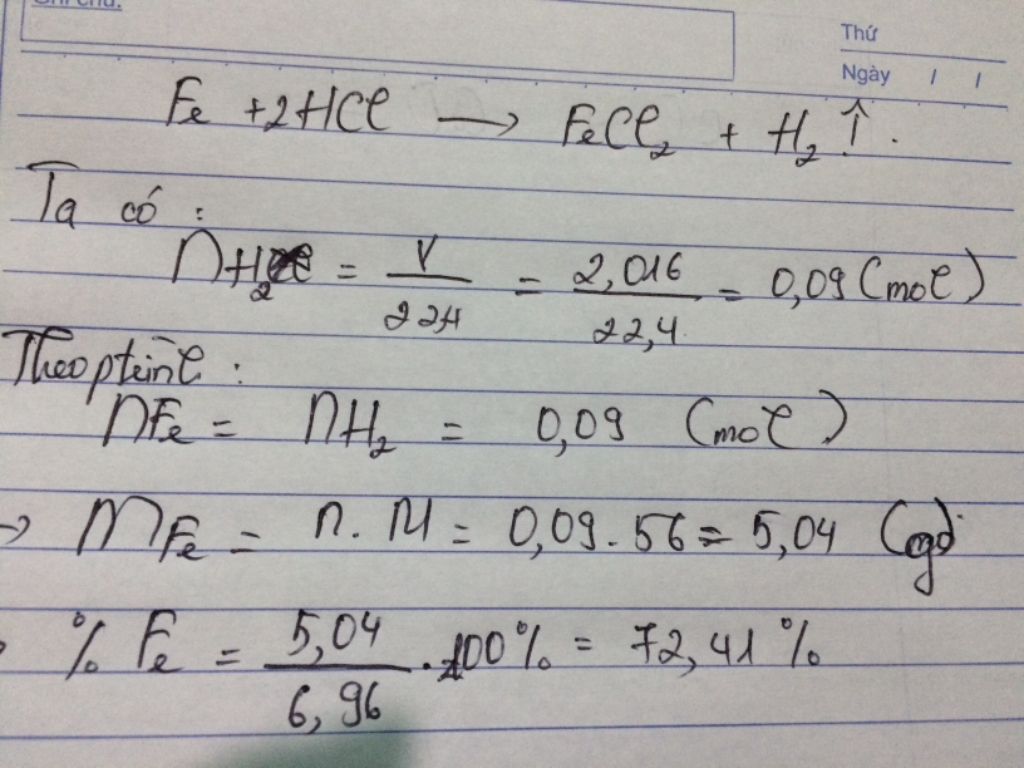 Ghi chú:
Thứ
Ngày / /
Fe + 2HCl → FeCl₂ + H₂ ↑.
Ta có :
nH₂ = V/22,4 = 2,016/22,4 = 0,09 (mol)
Theo ptrình :
nFe = nH₂ = 0,09 (mol)
→ mFe = n . M = 0,09 . 56 = 5,04 (g)
% Fe = 5,04/6,96 . 100% = 72,41 %